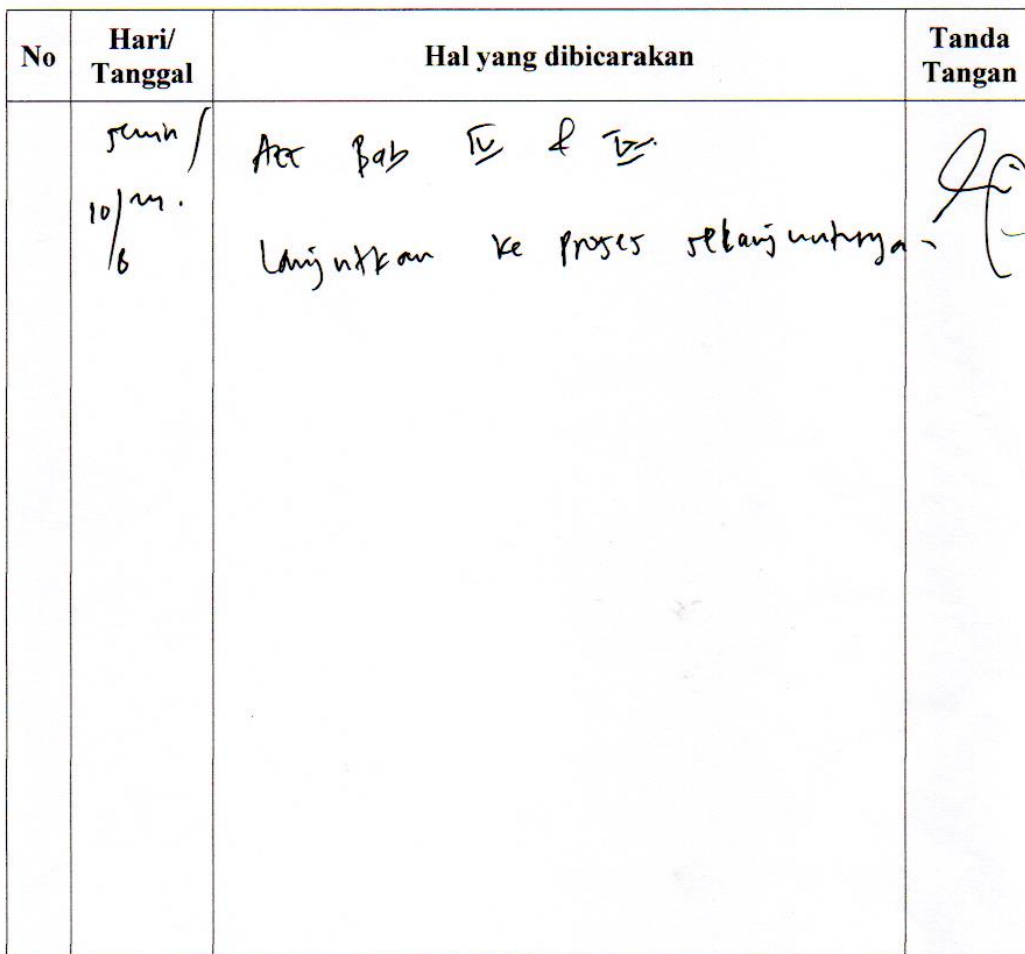 No
Hari/
Tanggal
Hal yang dibicarakan
Tanda
Tangan
Senin /
10/
/6
Acc Bab IV & V
Lanjutkan ke proses selanjutnya